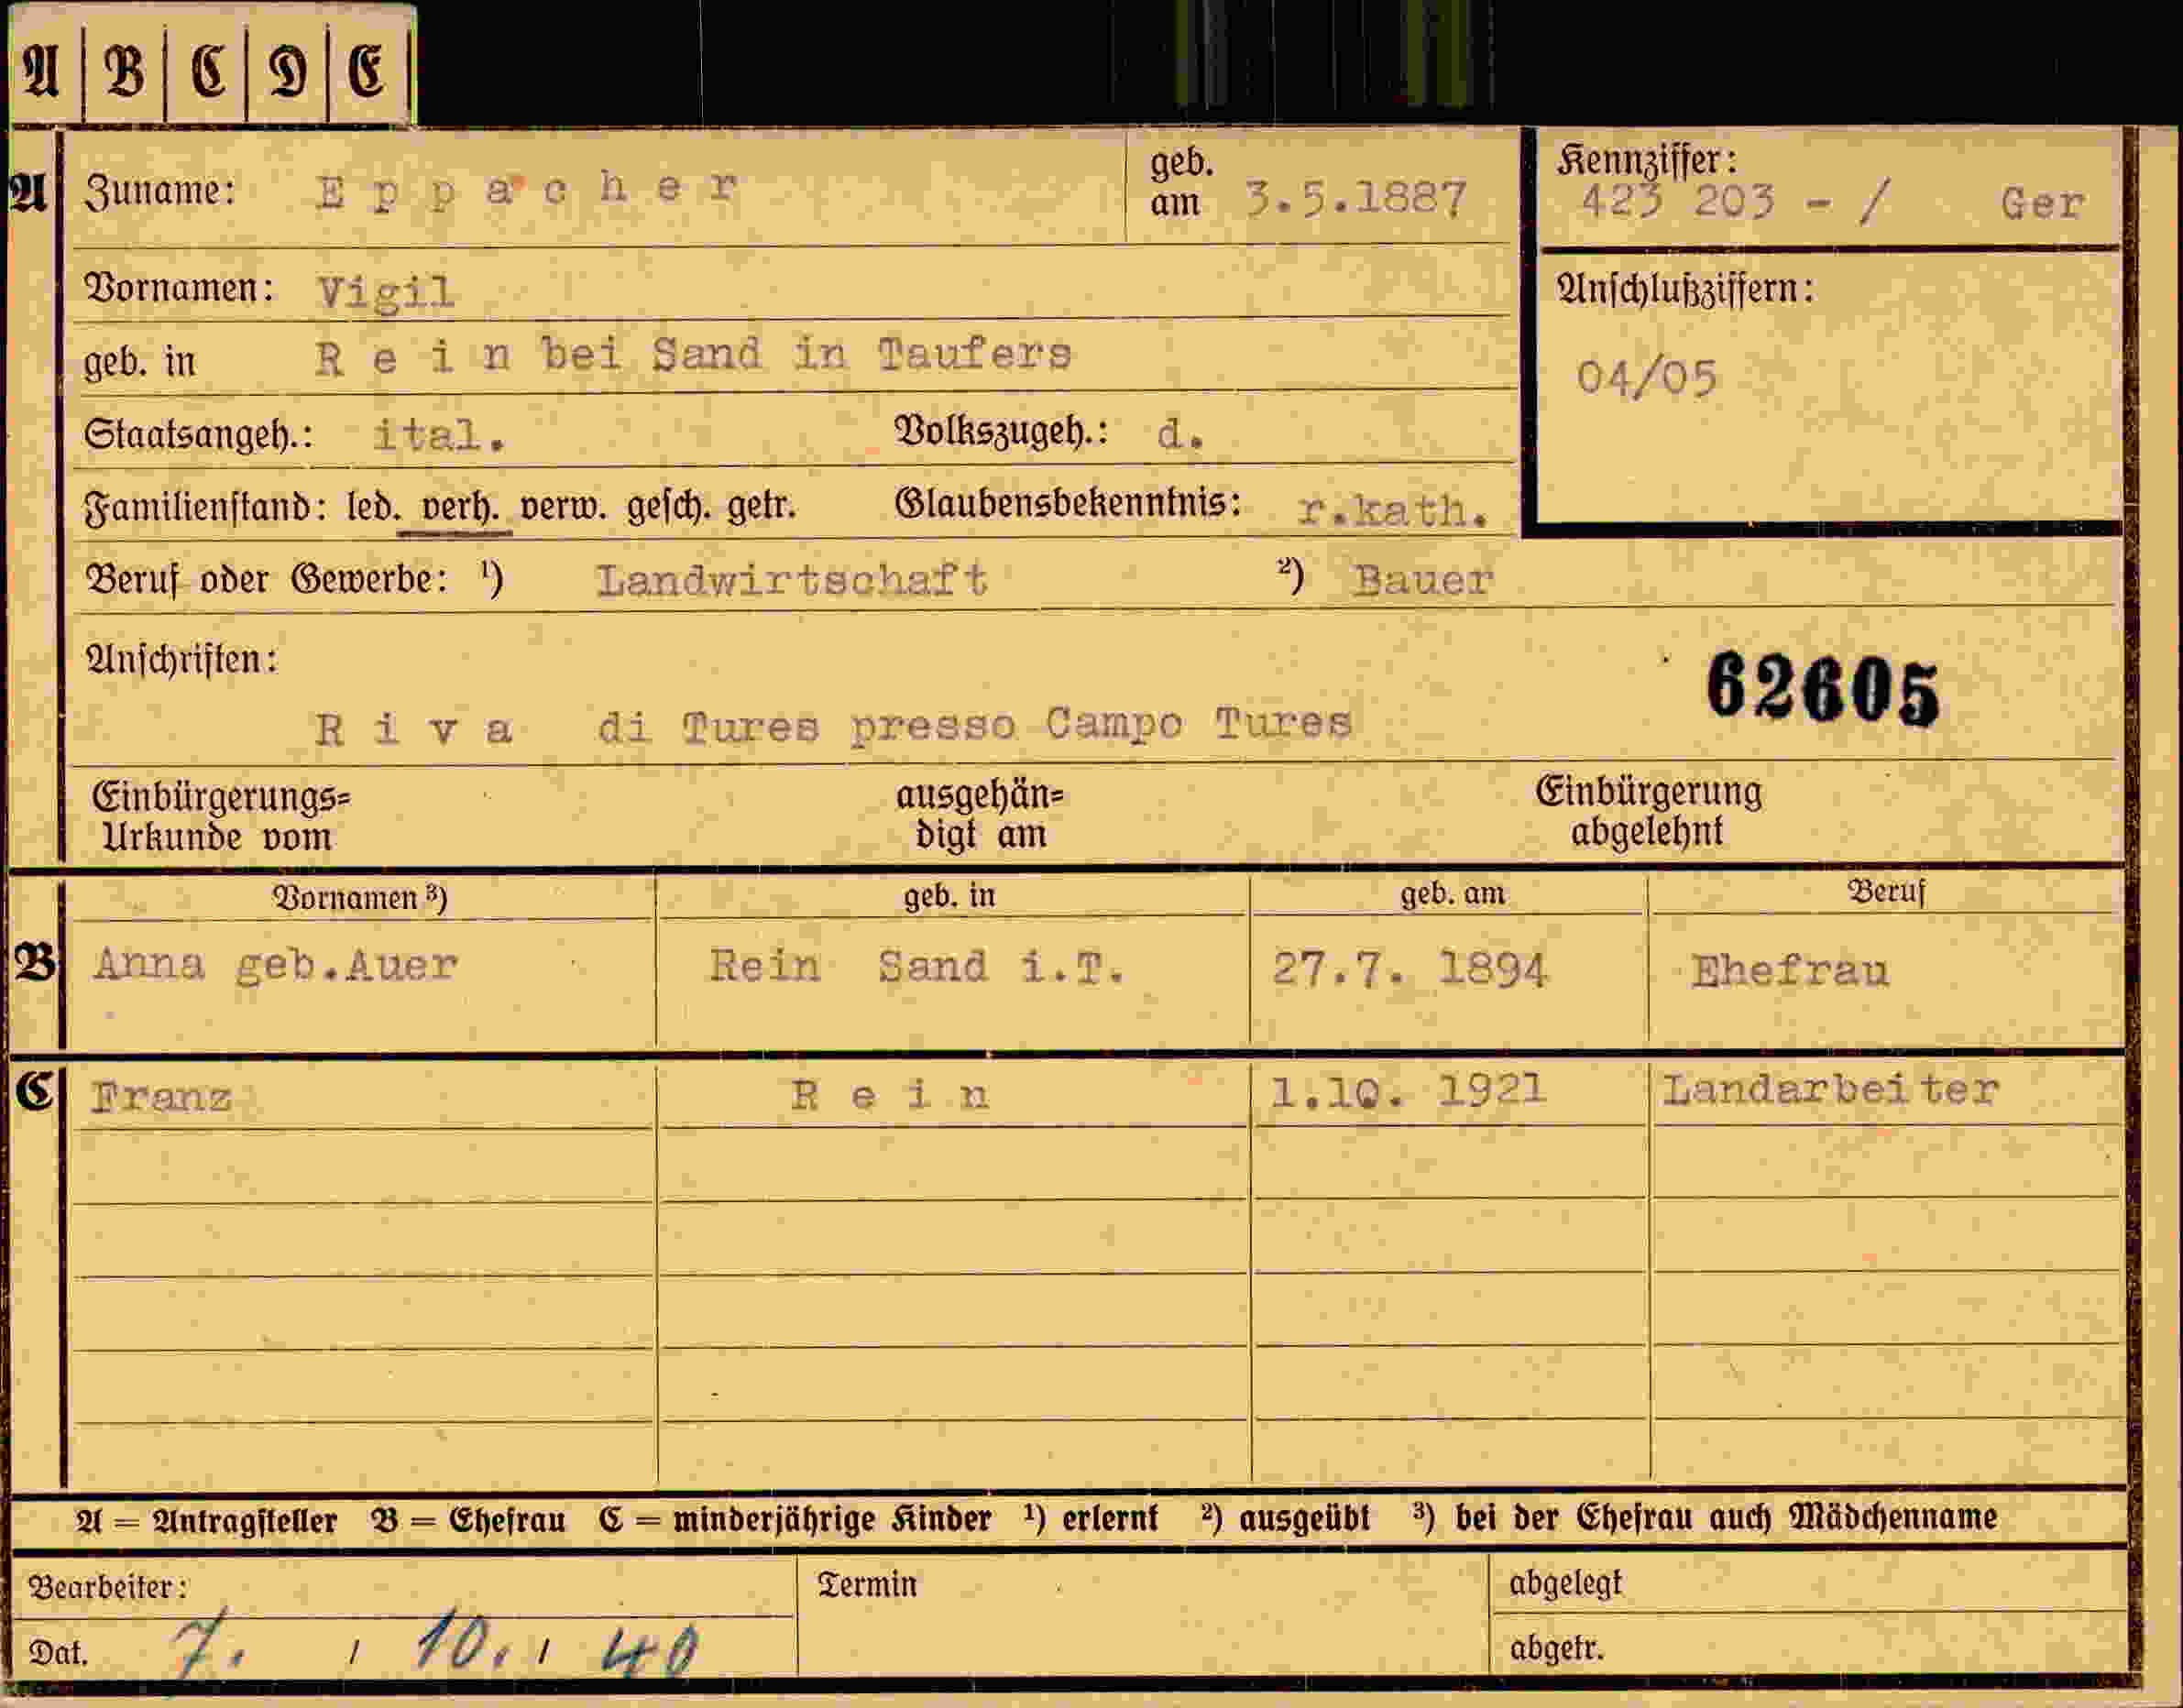 A B C D E
A Zuname: Eppacher geb. am 3.5.1887 Kennziffer: 423 203 - / Ger
Vornamen: Vigil Anschlußziffern:
geb. in Rein bei Sand in Taufers 04/05
Staatsangeh.: ital. Volkszugeh.: d.
Familienstand: led. verh. verw. gesch. getr. Glaubensbekenntnis: r.kath.
Beruf oder Gewerbe: ¹) Landwirtschaft ²) Bauer
Anschriften: 62605
Riva di Tures presso Campo Tures
Einbürgerungs= ausgehän= Einbürgerung
Urkunde vom digt am abgelehnt
Vornamen ³) geb. in geb. am Beruf
B Anna geb.Auer Rein Sand i.T. 27.7. 1894 Ehefrau
C Franz Rein 1.10. 1921 Landarbeiter
A = Antragsteller B = Ehefrau C = minderjährige Kinder ¹) erlernt ²) ausgeübt ³) bei der Ehefrau auch Mädchenname
Bearbeiter: Termin abgelegt
Dat. 7. / 10. / 40 abgetr.